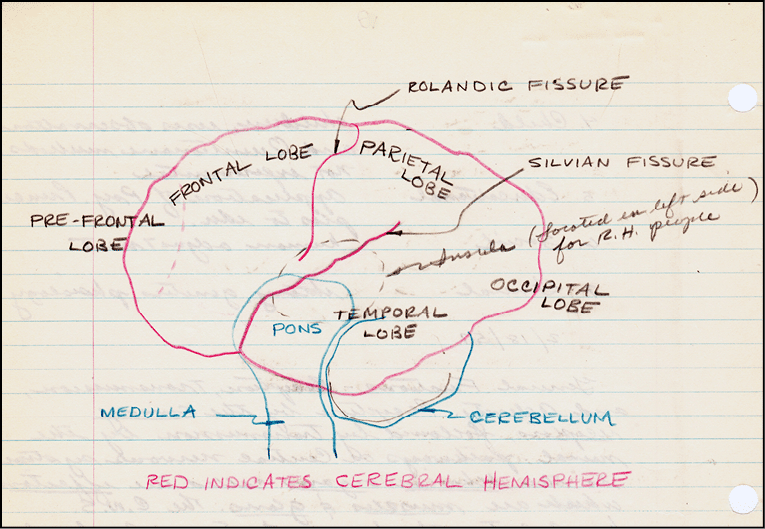 ROLANDIC FISSURE
FRONTAL LOBE
PARIETAL
LOBE
SILVIAN FISSURE
PRE-FRONTAL
LOBE
Insula (located in left side)
for R.H. people
OCCIPITAL
LOBE
PONS
TEMPORAL
LOBE
MEDULLA
CEREBELLUM
RED INDICATES CEREBRAL HEMISPHERE